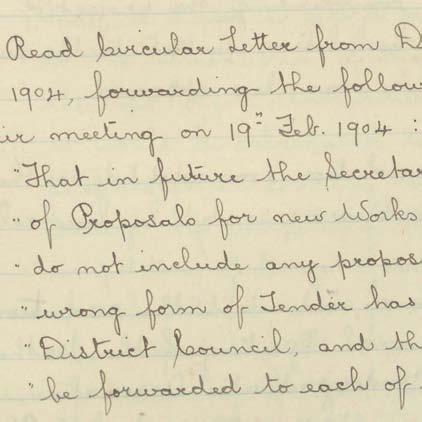 Read Circular Letter from D
1904, forwarding the follow
ir meeting on 19th Feb. 1904 :
"That in future the Secretar
" of Proposals for new Works
" do not include any propos
" wrong form of Tender has
" District Council, and th
" be forwarded to each of